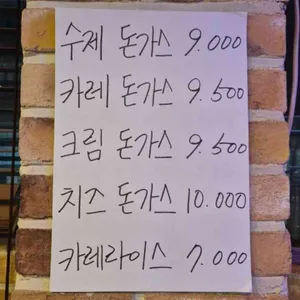 수제 돈가스 9.000
카레 돈가스 9.500
크림 돈가스 9.500
치즈 돈가스 10.000
카레라이스 7.000